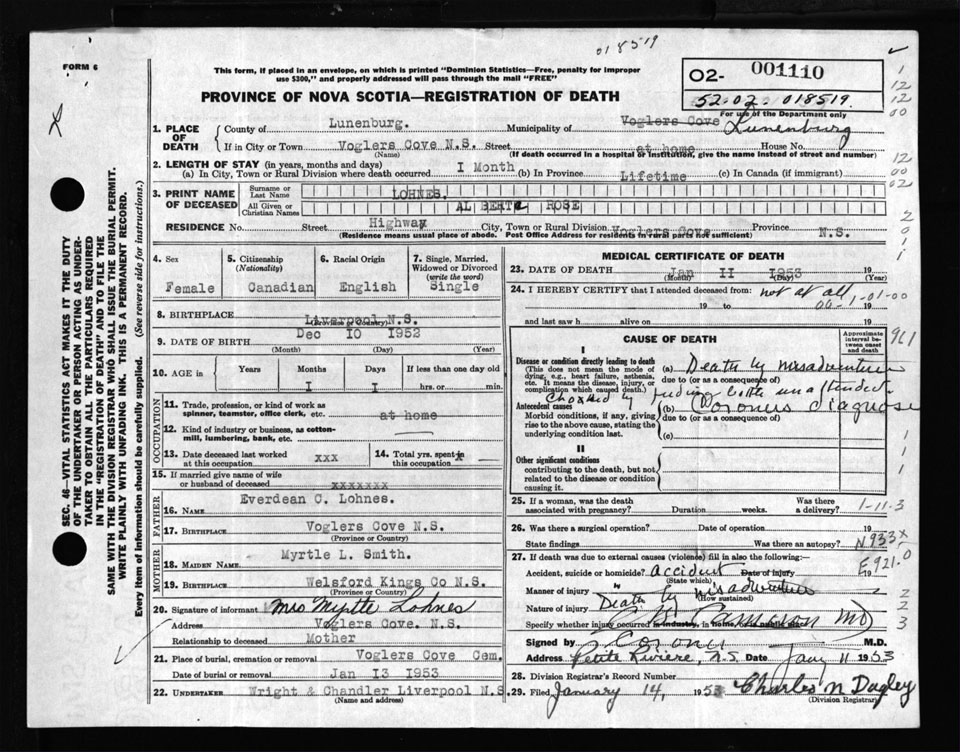 018519
FORM 6
This form, if placed in an envelope, on which is printed "Dominion Statistics—Free, penalty for improper
use $300," and properly addressed will pass through the mail "FREE"
PROVINCE OF NOVA SCOTIA—REGISTRATION OF DEATH
O2- 001110
52.02. 018519.
For use of the Department only
1. PLACE OF DEATH County of Lunenburg. Municipality of Voglers Cove Lunenburg
If in City or Town Voglers Cove N.S. Street at home House No.
(Name) (If death occurred in a hospital or institution, give the name instead of street and number)
2. LENGTH OF STAY (in years, months and days)
(a) In City, Town or Rural Division where death occurred I Month (b) In Province Lifetime (c) In Canada (if immigrant)
3. PRINT NAME OF DECEASED Surname or Last Name LOHNES.
All Given or Christian Names ALBERT ROSE
RESIDENCE No. Street Highway City, Town or Rural Division Voglers Cove Province N.S.
(Residence means usual place of abode. Post Office Address for residents in rural parts not sufficient)
4. Sex Female
5. Citizenship (Nationality) Canadian
6. Racial Origin English
7. Single, Married, Widowed or Divorced (write the word) Single
8. BIRTHPLACE Liverpool N.S.
(Province or Country)
9. DATE OF BIRTH Dec 10 1952
(Month) (Day) (Year)
10. AGE in Years Months Days If less than one day old
I I hrs. or min.
OCCUPATION
11. Trade, profession, or kind of work as
spinner, teamster, office clerk, etc. at home
12. Kind of industry or business, as cotton-
mill, lumbering, bank, etc. —
13. Date deceased last worked
at this occupation xxx
14. Total yrs. spent in
this occupation x —
15. If married give name of wife
or husband of deceased xxxxxxx
FATHER
16. Name Everdean C. Lohnes.
17. Birthplace Voglers Cove N.S.
(Province or Country)
MOTHER
18. Maiden Name Myrtle L. Smith.
19. Birthplace Welsford Kings Co N.S.
(Province or Country)
20. Signature of informant Mrs Myrtle Lohnes
Address Voglers Cove. N.S.
Relationship to deceased Mother
21. Place of burial, cremation or removal Voglers Cove Cem.
Date of burial or removal Jan 13 1953
22. UNDERTAKER Wright & Chandler Liverpool N.S.
(Name and address)
MEDICAL CERTIFICATE OF DEATH
23. DATE OF DEATH Jan II 1953 19
(Month) (Day) (Year)
24. I HEREBY CERTIFY that I attended deceased from: not at all
19 to 00-1-01-00 19
and last saw h alive on 19
CAUSE OF DEATH
Approximate interval between onset and death
921
I
Disease or condition directly leading to death
(This does not mean the mode of
dying, e.g., heart failure, asthenia,
etc. It means the disease, injury, or
complication which caused death.)
(a) Death by misadventure
due to (or as a consequence of)
Chocked by feeding bottle unattended
Antecedent causes
Morbid conditions, if any, giving
rise to the above cause, stating the
underlying condition last.
(b) Coroners diagnose
due to (or as a consequence of)
(c)
II
Other significant conditions
contributing to the death, but not
related to the disease or condition
causing it.
25. If a woman, was the death
associated with pregnancy? Duration weeks. Was there
a delivery? 1-11-3
26. Was there a surgical operation? Date of operation 19
State findings Was there an autopsy? N933x
27. If death was due to external causes (violence) fill in also the following:— E921-0
Accident, suicide or homicide? accident Date of injury 19
(State which)
Manner of injury Death by misadventure
(How sustained)
Nature of injury
Specify whether injury occurred in industry, in home, in public place MD
Signed by Coroner M.D.
Address Petite Riviere, N.S. Date Jany 11 1953
28. Division Registrar's Record Number
29. Filed January 14, 1953 Charles N Dagley
(Division Registrar)
SEC. 46—VITAL STATISTICS ACT MAKES IT THE DUTY
OF THE UNDERTAKER OR PERSON ACTING AS UNDER-
TAKER TO OBTAIN ALL THE PARTICULARS REQUIRED
IN THE "REGISTRATION OF DEATH" AND TO FILE THE
SAME WITH THE DIVISION REGISTRAR WHO SHALL ISSUE THE BURIAL PERMIT.
WRITE PLAINLY WITH UNFADING INK. THIS IS A PERMANENT RECORD.
Every item of information should be carefully supplied. (See reverse side for instructions.)
1
12
12
00
12
00
02
2
0
1
1
1
1
1
2
2
3